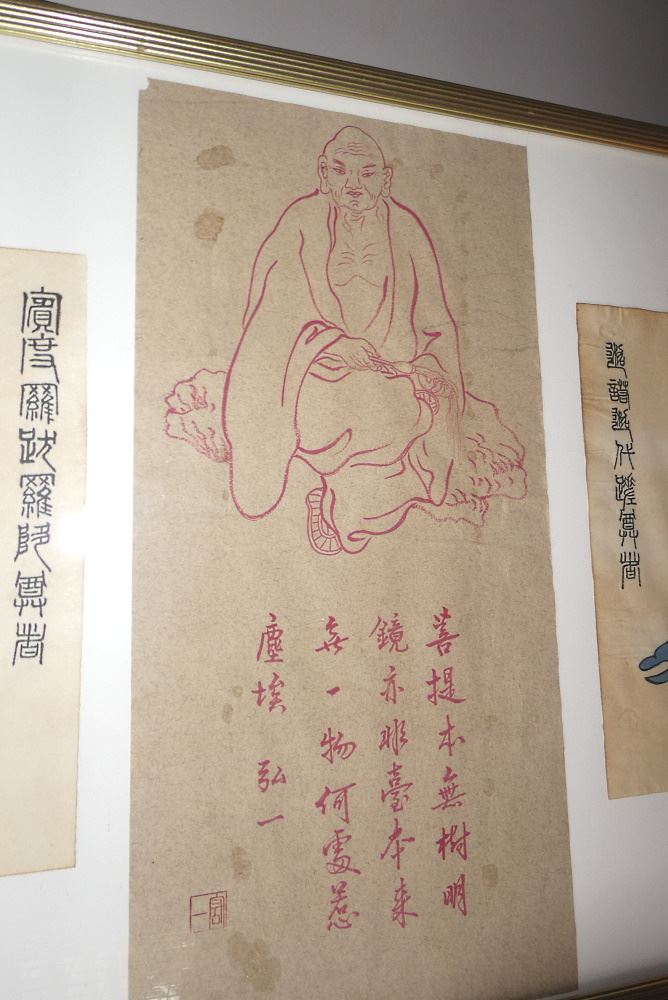 迦諾迦代蹉尊者
菩提本無樹明
鏡亦非臺本来
無一物何處惹
塵埃 弘一
賓度羅跋羅陊尊者